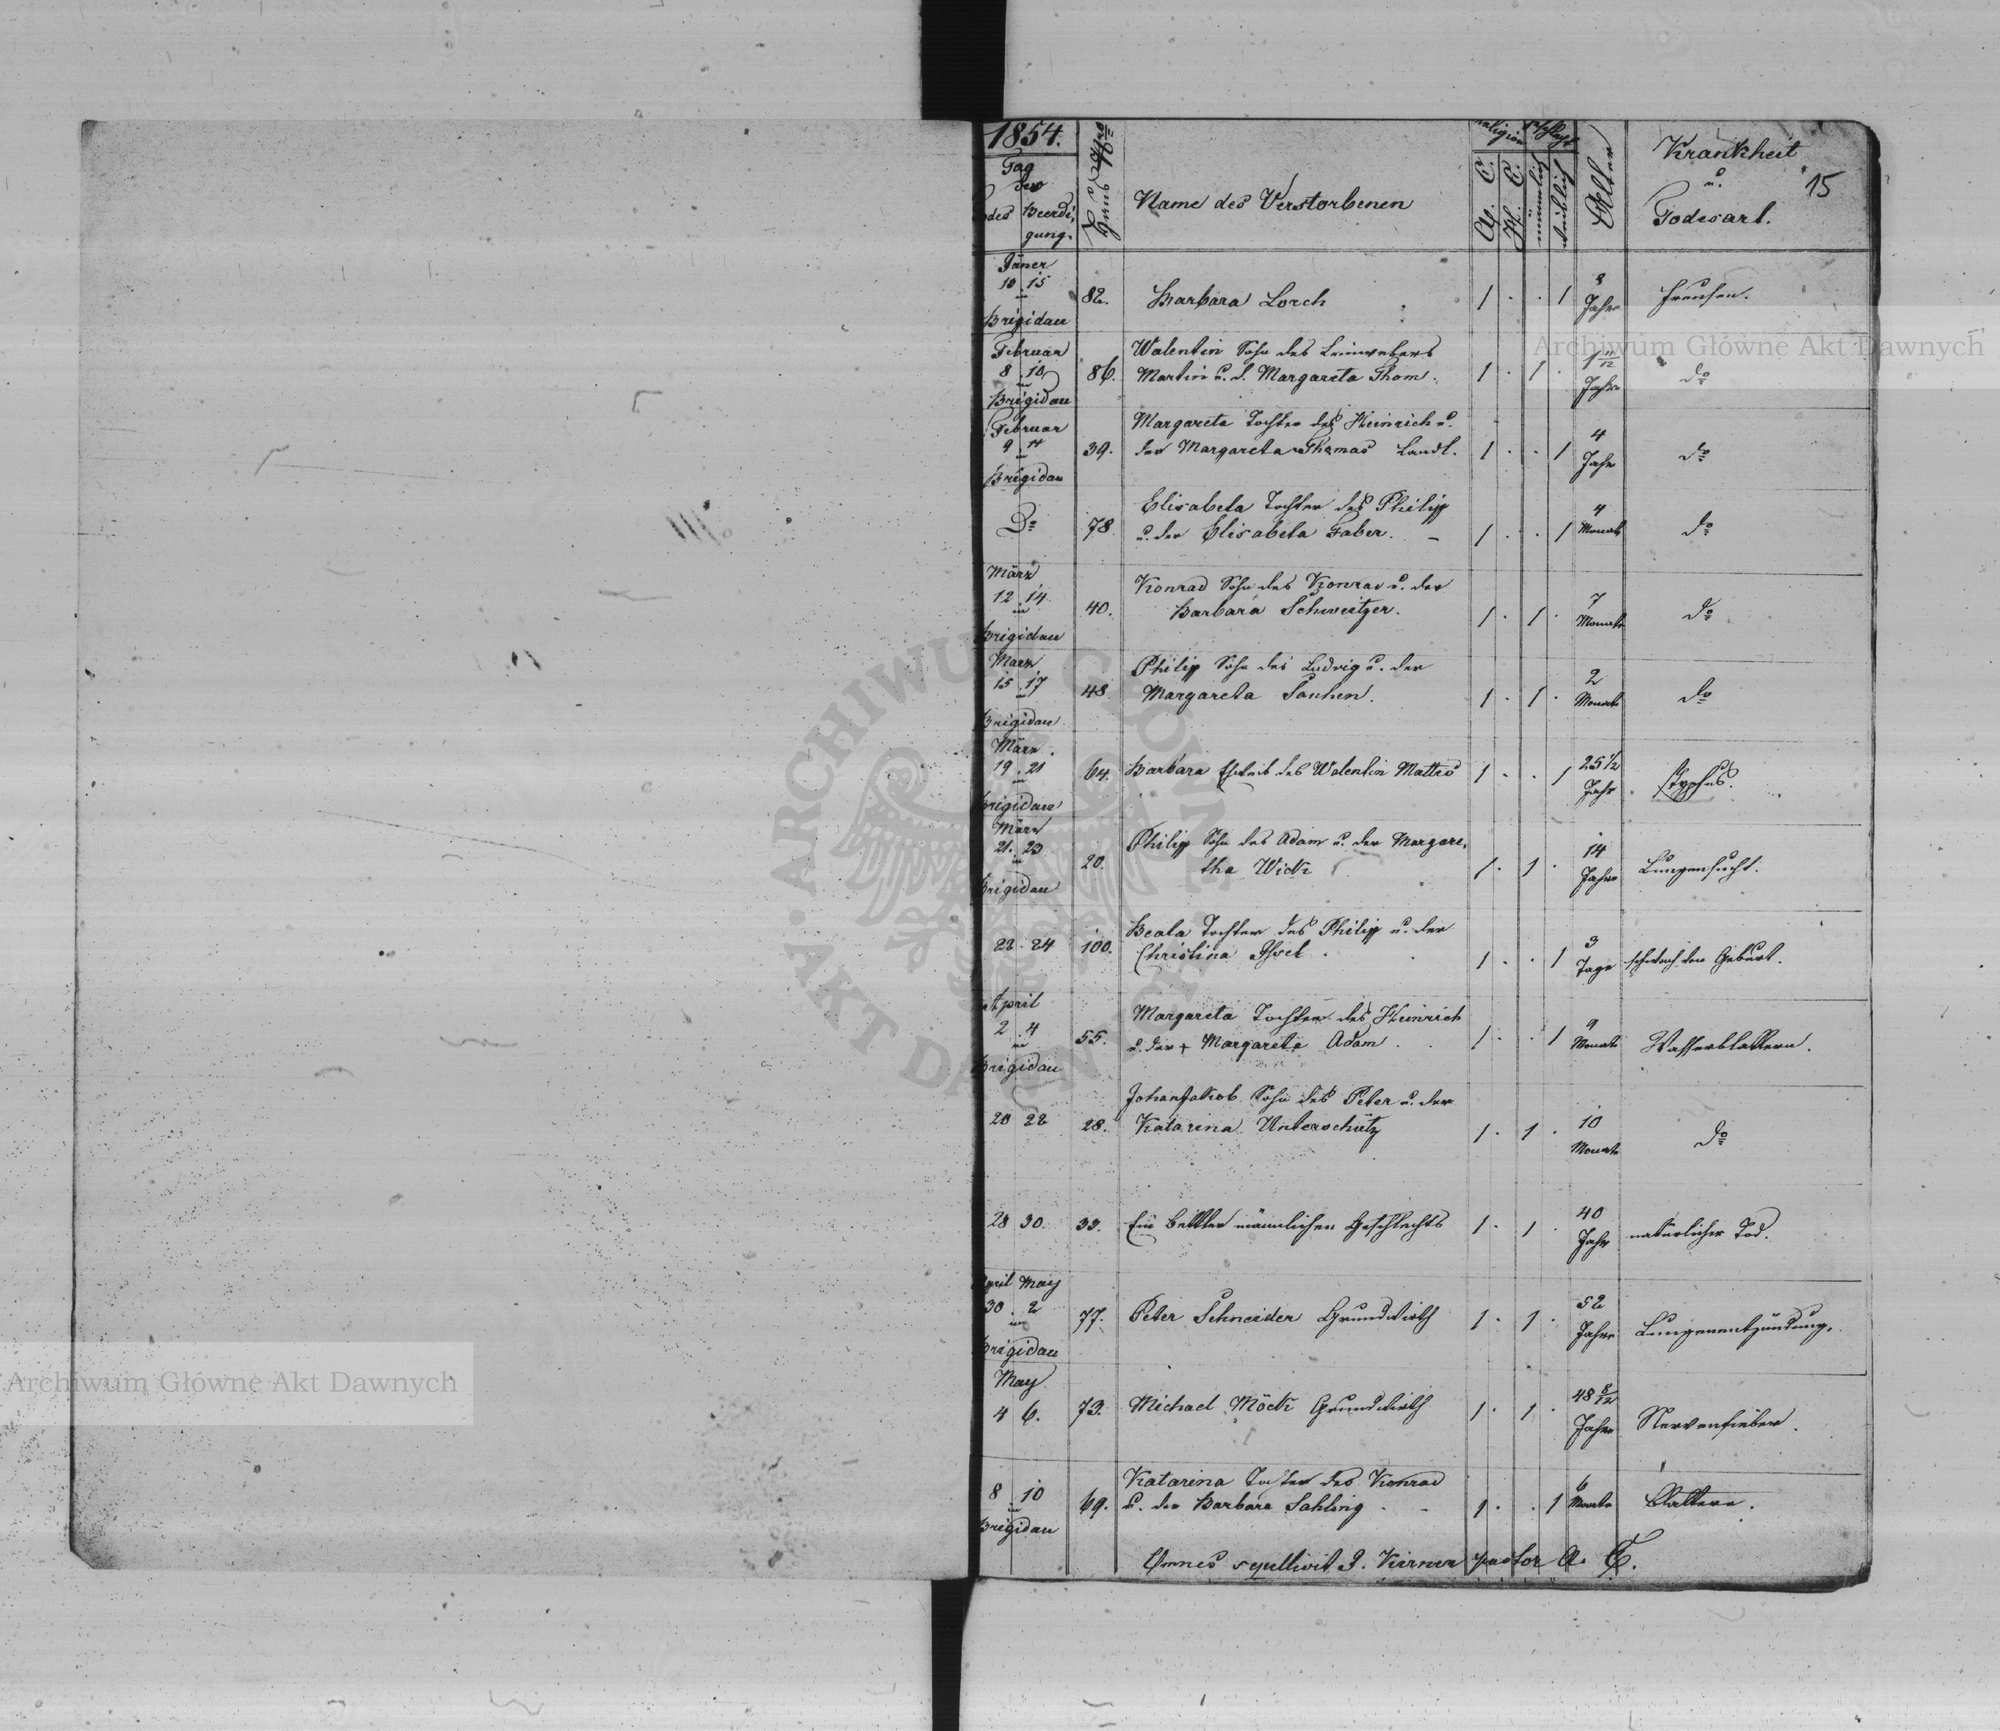 1854.
Tag
der
Todes Beerdi-
gung.
Haus Nro
Name des Verstorbenen
Religion
A. C.
H. C.
Geschlecht
männlich
weiblich
Alter
Krankheit
u.
Todesart.
15
Jäner
10 15
in
Brigidau
82.
Barbara Lorch
1 . . 1
8
Jahre
Freusen.
Februar
8 10
in
Brigidau
86.
Walentin Sohn des Leinwebers
Martin u. d. Margareta Thom.
1 . 1 .
1 11/12
Jahre
do
Februar
9 11
in
Brigidau
39.
Margareta Tochter des Heinrich u.
der Margareta Thomas Landl.
1 . . 1
4
Jahre
do
Do
78.
Elisabeta Tochter des Philipp
u. der Elisabeta Faber. –
1 . . 1
4
Monate
do
März
12 14
in
Brigidau
40.
Konrad Sohn des Konrad u. der
Barbara Schweitzer.
1 . 1 .
7
Monate
do
März
15 17
in
Brigidau
48
Philipp Sohn des Ludwig u. der
Margareta
1 . 1 .
2
Monate
do
März
19 21
in
Brigidau
64.
Barbara Eheweib des Walentin Mattes
1 . . 1
25 1/2
Jahr
Typhus.
März
21. 23
in
Brigidau
20.
Philipp Sohn des Adam u. der Margare-
tha Wick
1 . 1 .
14
Jahre
Lungensucht.
22 24
100.
Beata Tochter des Philipp u. der
Christina
1 . . 1
3
Tage
schwach von Geburt.
April
2 4
in
Brigidau
55.
Margareta Tochter des Heinrich
u. der + Margareta Adam
1 . . 1
9
Monate
Wasserblattern.
20 22
28.
Johan Jakob Sohn des Peter u. der
Katarina Unterschütz
1 . 1 .
10
Monate
do
28 30
33.
Ein Bettler männlichen Geschlechts
1 . 1 .
40
Jahr
natürlicher Tod.
April May
30 2
in
Brigidau
77.
Peter Schneider Grundwirth
1 . 1 .
52
Jahre
Lungenentzündung.
May
4 6.
73.
Michael Möck Grundwirth
1 . 1 .
48 8/12
Jahre
Nervenfieber.
8 10
in
Brigidau
69.
Katarina Tochter des Konrad
u. der Barbara Sahling
1 . . 1
6
Monate
Blattern.
Omnes sepellivit J. Kirner pastor A. C.
Archiwum Główne Akt Dawnych
Archiwum Główne Akt Dawnych
ARCHIWUM GŁÓWNE AKT DAWNYCH